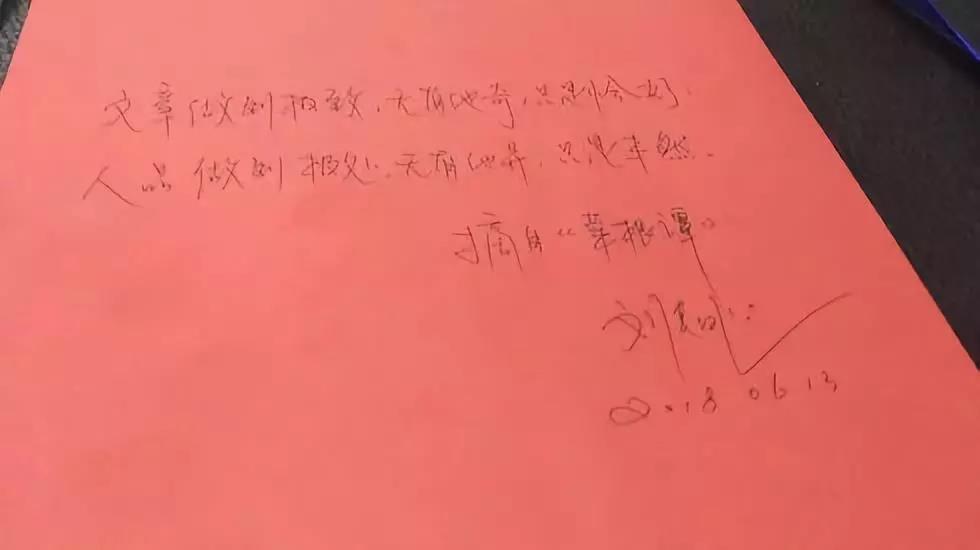 文章做到极致，无有他奇，只是恰好．
人品做到极处，无有他异，只是本然．
摘自“菜根谭”
刘
2018 06 13